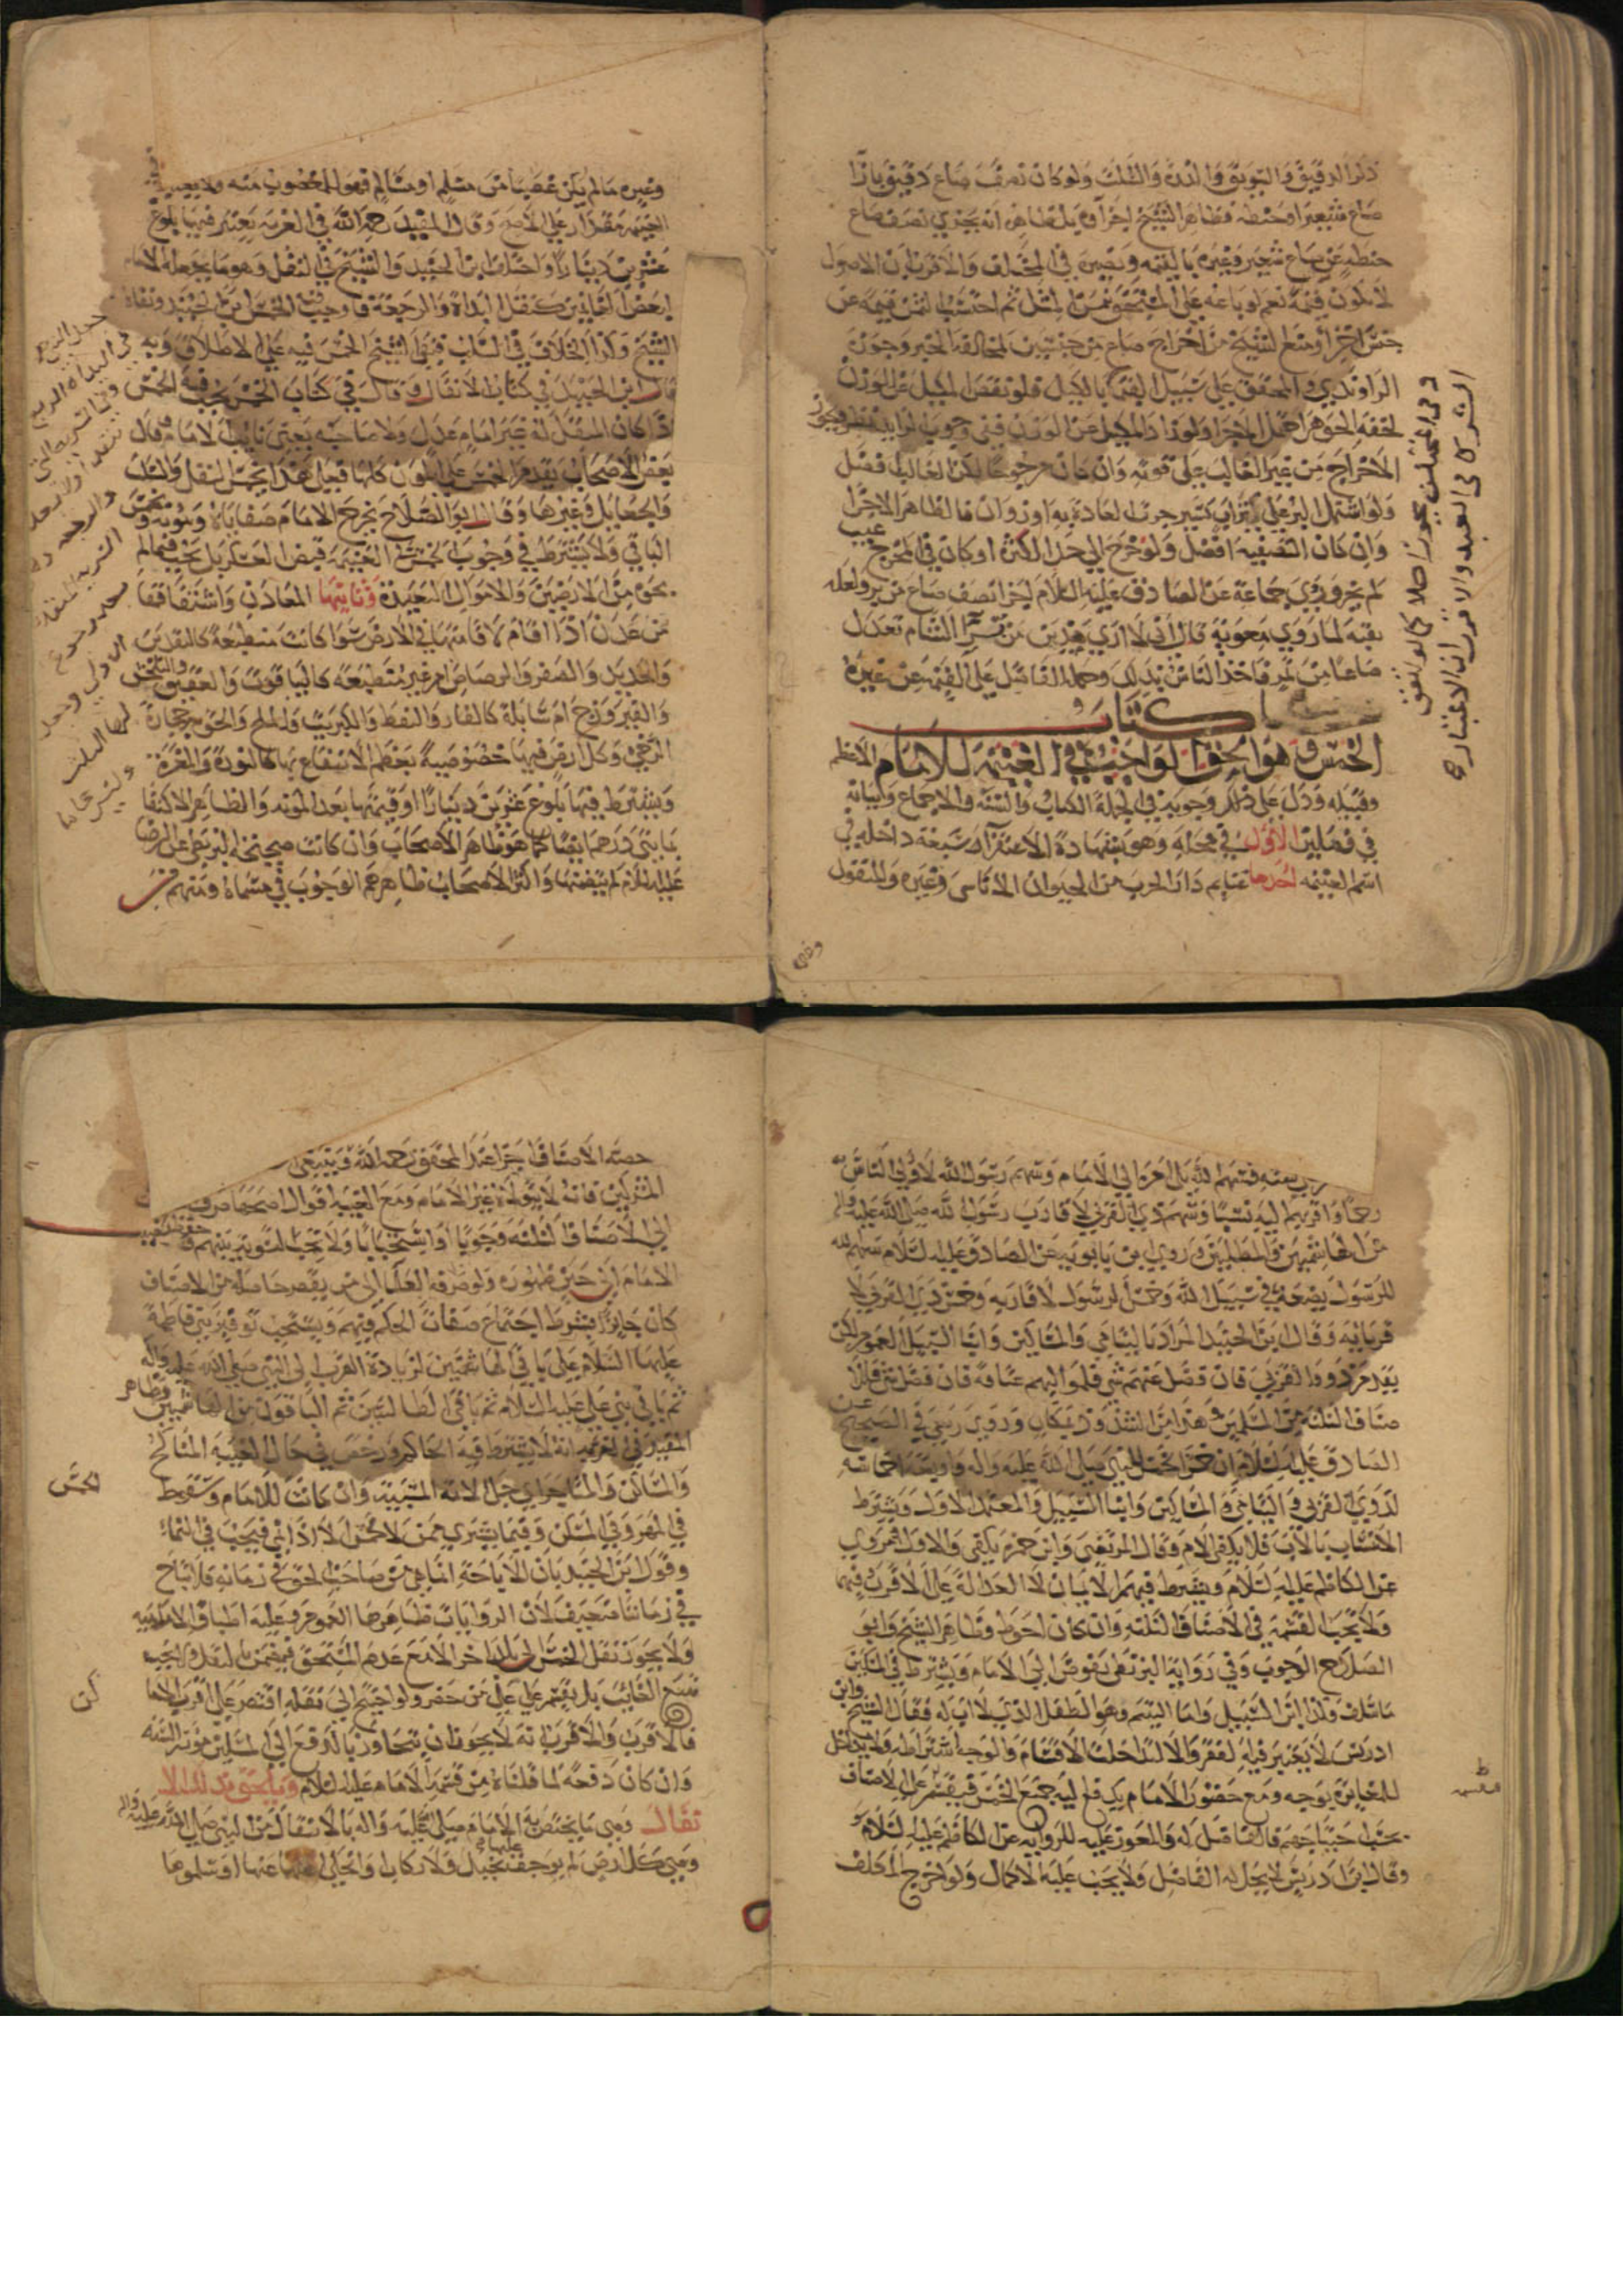 ذكرا الدقيق والسويق والذرة والسلت ولو كان نصف صاع دقيق بازا
صاع شعيرا وحنطة فظاهر الشيخ اجزاؤه بل ظاهره انه يجزي نصف صاع
حنطة عن صاع شعير وغيره بالقيمة ونصره في المختلف والاقرب ان الاصول
لا تكون قيمة نعم لو باعه على المستحق بثمن المثل ثم احتسب الثمن قيمة عن
جنس اخر اجزا ومنع الشيخ من اخراج صاع من جنسين لمخالفة الخبر وجوزه
الراوندي والمحقق على سبيل القيمة بالكيل فلو نقص المكيل عن الوزن
لخفة الجوهر احتمل الاجزا ولو زاد المكيل عن الوزن ففي وجوب الزايد نظر ويجوز
الاخراج من غير الغالب على قوته وان كان مرجوحا لكن الغالب افضل
ولو اشتمل البر على تراب كثير جرت العادة به او زوان فالظاهر الاجزا
وان كان التصفية افضل ولو خرج الى حد الكثرة او كان في المخرج عيب
لم يجز وروي جماعة عن الصادق عليه السلام اجزا نصف صاع من بر ولعله
تقية لما روي معوية قال اني لا ارى مدين من سمرا الشام تعدل
صاعا من تمر فاخذ الناس بذلك وحمله الفاضل على القيمة عن غيره
كتاب
الخمس وهو الحق الواجب في الغنيمة للامام الاعظم
وقبيله ودل على ذلك وجوبه في الجملة الكتاب والسنة والاجماع وبيانه
في فصلين الاول في محله وهو بشهادة الاستقرا سبعة داخله في
اسم الغنيمه احدها غنايم دار الحرب من الحيوان الاناسي وغيره والمنقول
وغيره ما لم يكن غصبا من مسلم او مسالم فهو للمغصوب منه ولا يعتبر في
الغنيمة مقدار على الاصح وقال المفيد رحمه الله في العزية يعتبر فيها بلوغ
عشرين دينارا واختلف ابن الجنيد والشيخ في النفل وهو ما يجعله الامام
لبعض الغانمين كنفل البداة والرجعة فاوجب الخمس ابن الجنيد ونفاه
الشيخ وكذا الخلاف في السلب فنفى الشيخ الخمس فيه على الاطلاق وبه
قال ابن الجنيد في كتاب الانفال وقال في كتاب الخمس يجب فيه الخمس
اذا كان المنفل له غير امام عدل ولا صاحبه يعني نايب الامام وقال
بعض الاصحاب يقدم الخمس على المؤن كلها فعلى هذا يخمس النفل والسلب
والجعايل وغيرها وقال ابو الصلاح يخرج الامام صفاياه ومؤنه ويخمس
الباقي ولا يشترط في وجوب خمس الغنيمة قبض العسكر بل يجب فيما لم
يحوه من الارضين والاموال البعيدة وثانيها المعادن واشتقاقها
من عدن اذا اقام لاقامتها في الارض سوا كانت منطبعة كالنقدين
والحديد والصفر والرصاص ام غير منطبعه كالياقوت والعقيق والبلخش
والفيروزج ام سايلة كالقار والنفط والكبريت والملح والحق به حجارة
الرحي وكل ارض فيها خصوصية يعظم الانتفاع بها كالنورة والمغرة
ويشترط فيها بلوغ عشرين دينارا او قيمتها بعد المونه والظاهر الاكتفا
بمايتي درهم ايضا كما هو ظاهر الاصحاب وان كانت صحيحة البزنطي عن الرضا
عليه السلام لم يتضمنها واكثر الاصحاب ظاهرهم الوجوب في مسماه ومنهم من
فسهم لله بل امره الى الامام وسهم رسول الله لاولي الناس به
رحما واقربهم اليه نسبا وسهم ذي القربى لاقارب رسول الله صلى الله عليه واله
من الهاشميين والمطلبيين وروى ابن بابويه عن الصادق عليه السلام سهم الله
للرسول يضعه في سبيل الله وخمس الرسول لاقاربه وخمس ذي القربى
قرباييه وقال ابن الجنيد المراد باليتامى والمساكين وابنا السبيل العموم لكن
يقدم ذوو القربى فان فضل عنهم شي فلمواليهم عتاقة فان فضل شي فلاا
صناف الثلثة من المسلمين وهذا من الشذوذ بمكان وروى ربعي في الصحيح عن
الصادق عليه السلام ان خمس الخمس للنبي صلى الله عليه واله واربعة اخماسه
لذوي القربى واليتامى والمساكين وابنا السبيل والمعتمد الاول ويشترط
الانتساب بالاب فلا يكفي الام وقال المرتضى وابن حمزة يكفي والاول مروي
عن الكاظم عليه السلام ويشترط فيهم الايمان لا العدالة على الاقرب فيهما
ولا يجب القسمة في الاصناف الثلثة وان كان احوط وظاهر الشيخ وابو
الصلاح الوجوب وفي رواية البزنطي يفوض الى الامام ويشترط في المسكين
ما سلف وكذا ابن السبيل واما اليتيم وهو الطفل الذي لا اب له فقال الشيخ وابن
ادريس لا يعتبر فيه الفقر والا لتداخلت الاقسام والوجه اشتراطه ولا تداخل
للمغايرة بوجه ومع حضور الامام يدفع اليه جميع الخمس فيقسم على الاصناف
بحسب حاجتهم فالفاضل له والمعوز عليه للرواية عن الكاظم عليه السلام
وقال ابن ادريس لا يحل له الفاضل ولا يجب عليه الاكمال ولو اخرج المكلف
حصة الاصناف اجزا عند المحقق رحمه الله وينبغي
فانه لا يتولاه غير الامام ومع الغيبة اقوال اصحها صرف
الى الاصناف الثلثة وجوبا او استحبابا ولا تجب التسوية بينهم وحفظ نصيب
الامام الى حين ظهوره ولو صرفه العلما الى من يقصر حاصله من الاصناف
كان جايزا بشرط اجتماع صفات الحكم فيهم ويستحب توفير بني فاطمة
عليها السلام على باقي الهاشميين لزيادة القرب الى النبي صلى الله عليه واله
ثم باقي بني علي عليه السلام ثم باقي الطالبيين ثم الباقون من الهاشميين وظاهر
المفيد في العزيه انه لا يشترط فيه الحاكم ورخص في حال الغيبة المناكح
والمساكن والمتاجر اي حل الامة المسبية وان كانت للامام وسقوط
في المهر وفي المسكن وفيما يشتري ممن لا يخمس الا اذا نمي فيجب في النماء
وقول ابن الجنيد بان الاباحة انما هي من صاحب الحق في زمانه فلا تباح
في زماننا ضعيف لان الروايات ظاهرها العموم وعليه اطباق الاماميه
ولا يجوز نقل الخمس الى بلد اخر الا مع عدم المستحق فيضمن بالنقل ولا يجب
تتبع الغائب بل يقسم على من حضر ولو احتيج الى نقله اقتصر على اقرب الاماكن
فالاقرب والاقرب انه لا يجوز ان يتجاوز بالدفع الى المسكين مؤنة السنة
وان كان دفعة لما قلناه من قسمة الامام عليه السلام ويلحق بذلك الا
نفال وهي ما يختص به الامام صلى الله عليه واله بالانتقال من النبي صلى الله عليه واله
وهي كل ارض لم يوجف عليها بخيل ولا ركاب وانجلى اهلها عنها او سلموها